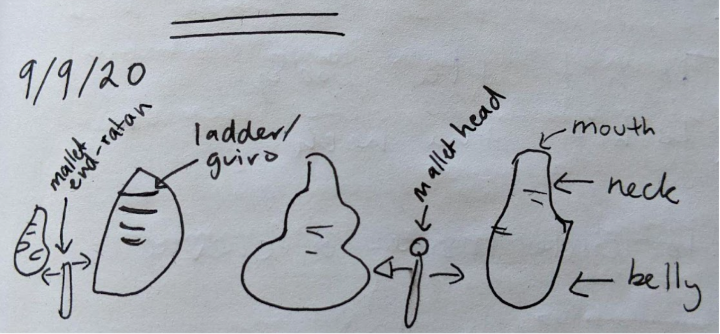 9/9/20
mallet
end-ratan
ladder/
guiro
mallet head
mouth
neck
belly